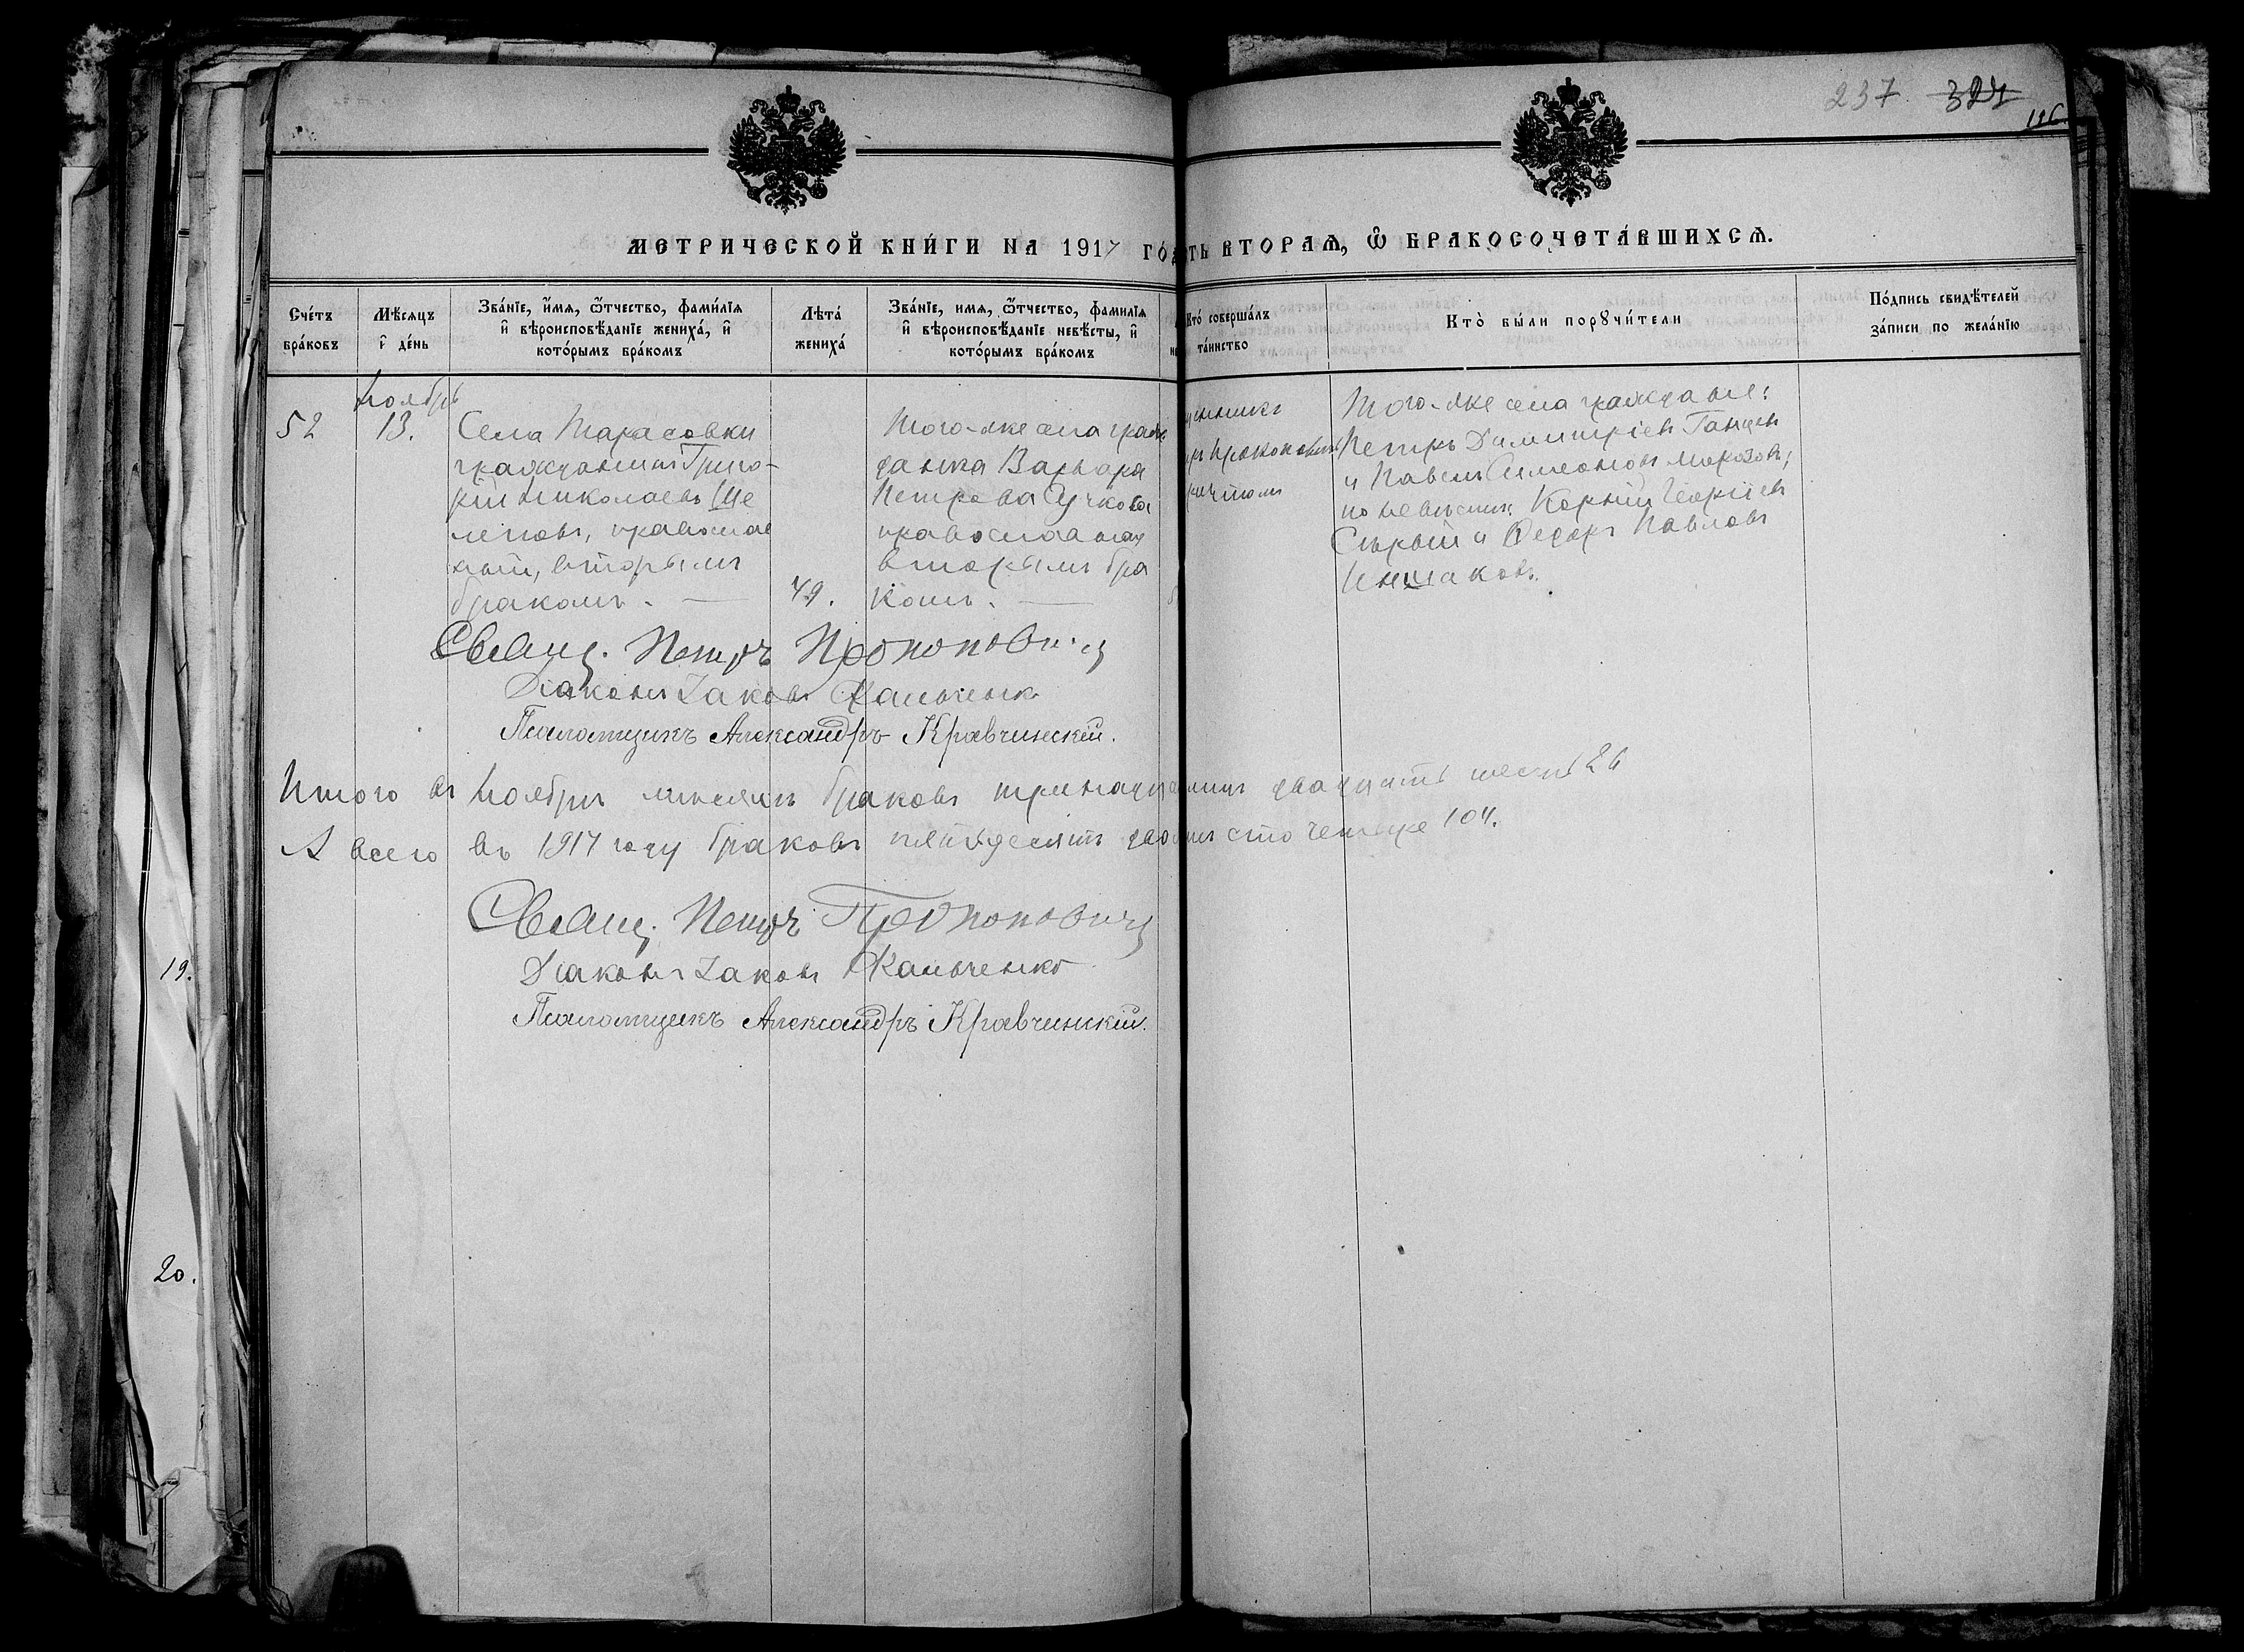 237 324
116
МЕТРИЧЕСКОЙ КНИ́ГИ НА 1917 ГО
ТЬ ВТОРАѦ, Ѿ БРАКОСОЧЕТА́ВШИХСѦ.
Сче́тъ бра́ковъ
Мѣ́сяцъ и҆ де́нь
Зва́нїе, и҆́мя, ѿтчество, фами́лїя и҆ вѣроисповѣ́данїе жениха́, и҆ кото́рымъ бра́комъ
Лѣта́ жениха́
Зва́нїе, имя, ѿтчество, фами́лїя и҆ вѣроисповѣ́данїе невѣ́сты, и҆ кото́рымъ бра́комъ
Кто̀ соверша́лъ та́инство
Кто̀ бы́ли порꙋчи́тели
По́дпись свидѣ́телей за́писи по жела́нїю
Ноябрь
52
13.
Села Тарасовки
гражданинъ Григо-
рій Николаевъ Ще
леповъ, православ
ный, вторымъ
бракомъ. —
49.
Того-же села граж
данка Варвара
Петрова Сучкова
православная
вторымъ бра
комъ. —
щенникъ
Прокоповичъ
Того-же села граждане:
Петръ Димитріевъ Ганцевъ
и Павелъ Симеоновъ Морозовъ;
по невѣстѣ: Корнилій Георгіевъ
Сѣрый и Ѳедоръ Павловъ
Иншаковъ.
Свящ. Петръ Прокоповичъ
Діаконъ Іаковъ Кальченко
Псаломщикъ Александръ Кравчинскій.
Итого въ Ноябрѣ мѣсяцѣ браковъ тринадца двадцать шесть 26
А всего въ 1917 году браковъ пятьдесятъ два сто четыре 104.
Свящ. Петръ Прокоповичъ
Діаконъ Іаковъ Кальченко
Псаломщикъ Александръ Кравчинскій.
19.
20.